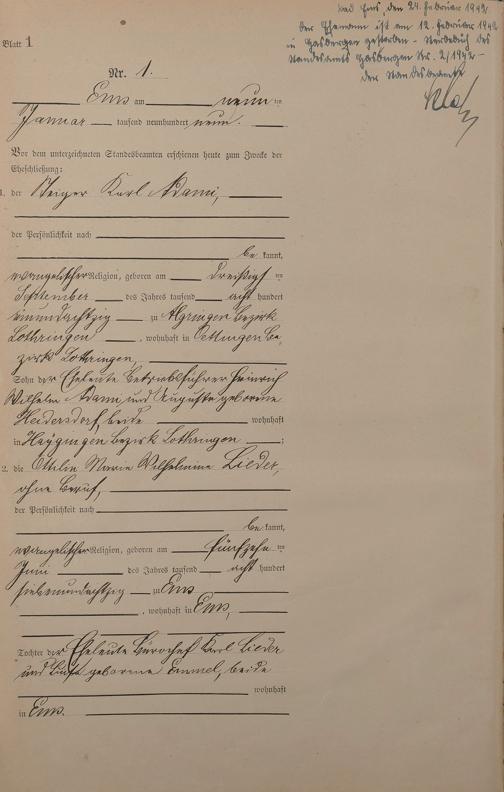 Bad Ems, den 24. Februar 1942
Der Ehemann ist am 12. Februar 1942
in Hasbergen gestorben - Sterbebuch des
Standesamts Hasbergen Nr. 2/1942 -
Der Standesbeamte
Blatt 1
Nr. 1.
Ems am neun ten
Januar tausend neunhundert neun.
Vor dem unterzeichneten Standesbeamten erschienen heute zum Zwecke der
Eheschließung:
1. der Steiger Karl Adami,
der Persönlichkeit nach
be kannt,
evangelischer Religion, geboren am dreißigsten
September des Jahres tausend acht hundert
einundachtzig zu Algringen Bezirk
Lothringen, wohnhaft in Oettingen Be-
zirk Lothringen,
Sohn der Eheleute Betriebsführer Heinrich
Wilhelm Adami und Auguste geborene
Heidersdorf, beide wohnhaft
in Hayingen Bezirk Lothringen;
2. die Ottilie Marie Wilhelmine Lieder,
ohne Beruf,
der Persönlichkeit nach
be kannt,
evangelischer Religion, geboren am fünfzehn ten
Juni des Jahres tausend acht hundert
siebenundachtzig zu Ems
, wohnhaft in Ems,
Tochter der Eheleute Bürochef Karl Lieder
und geborene Emmel, beide
wohnhaft
in Ems.